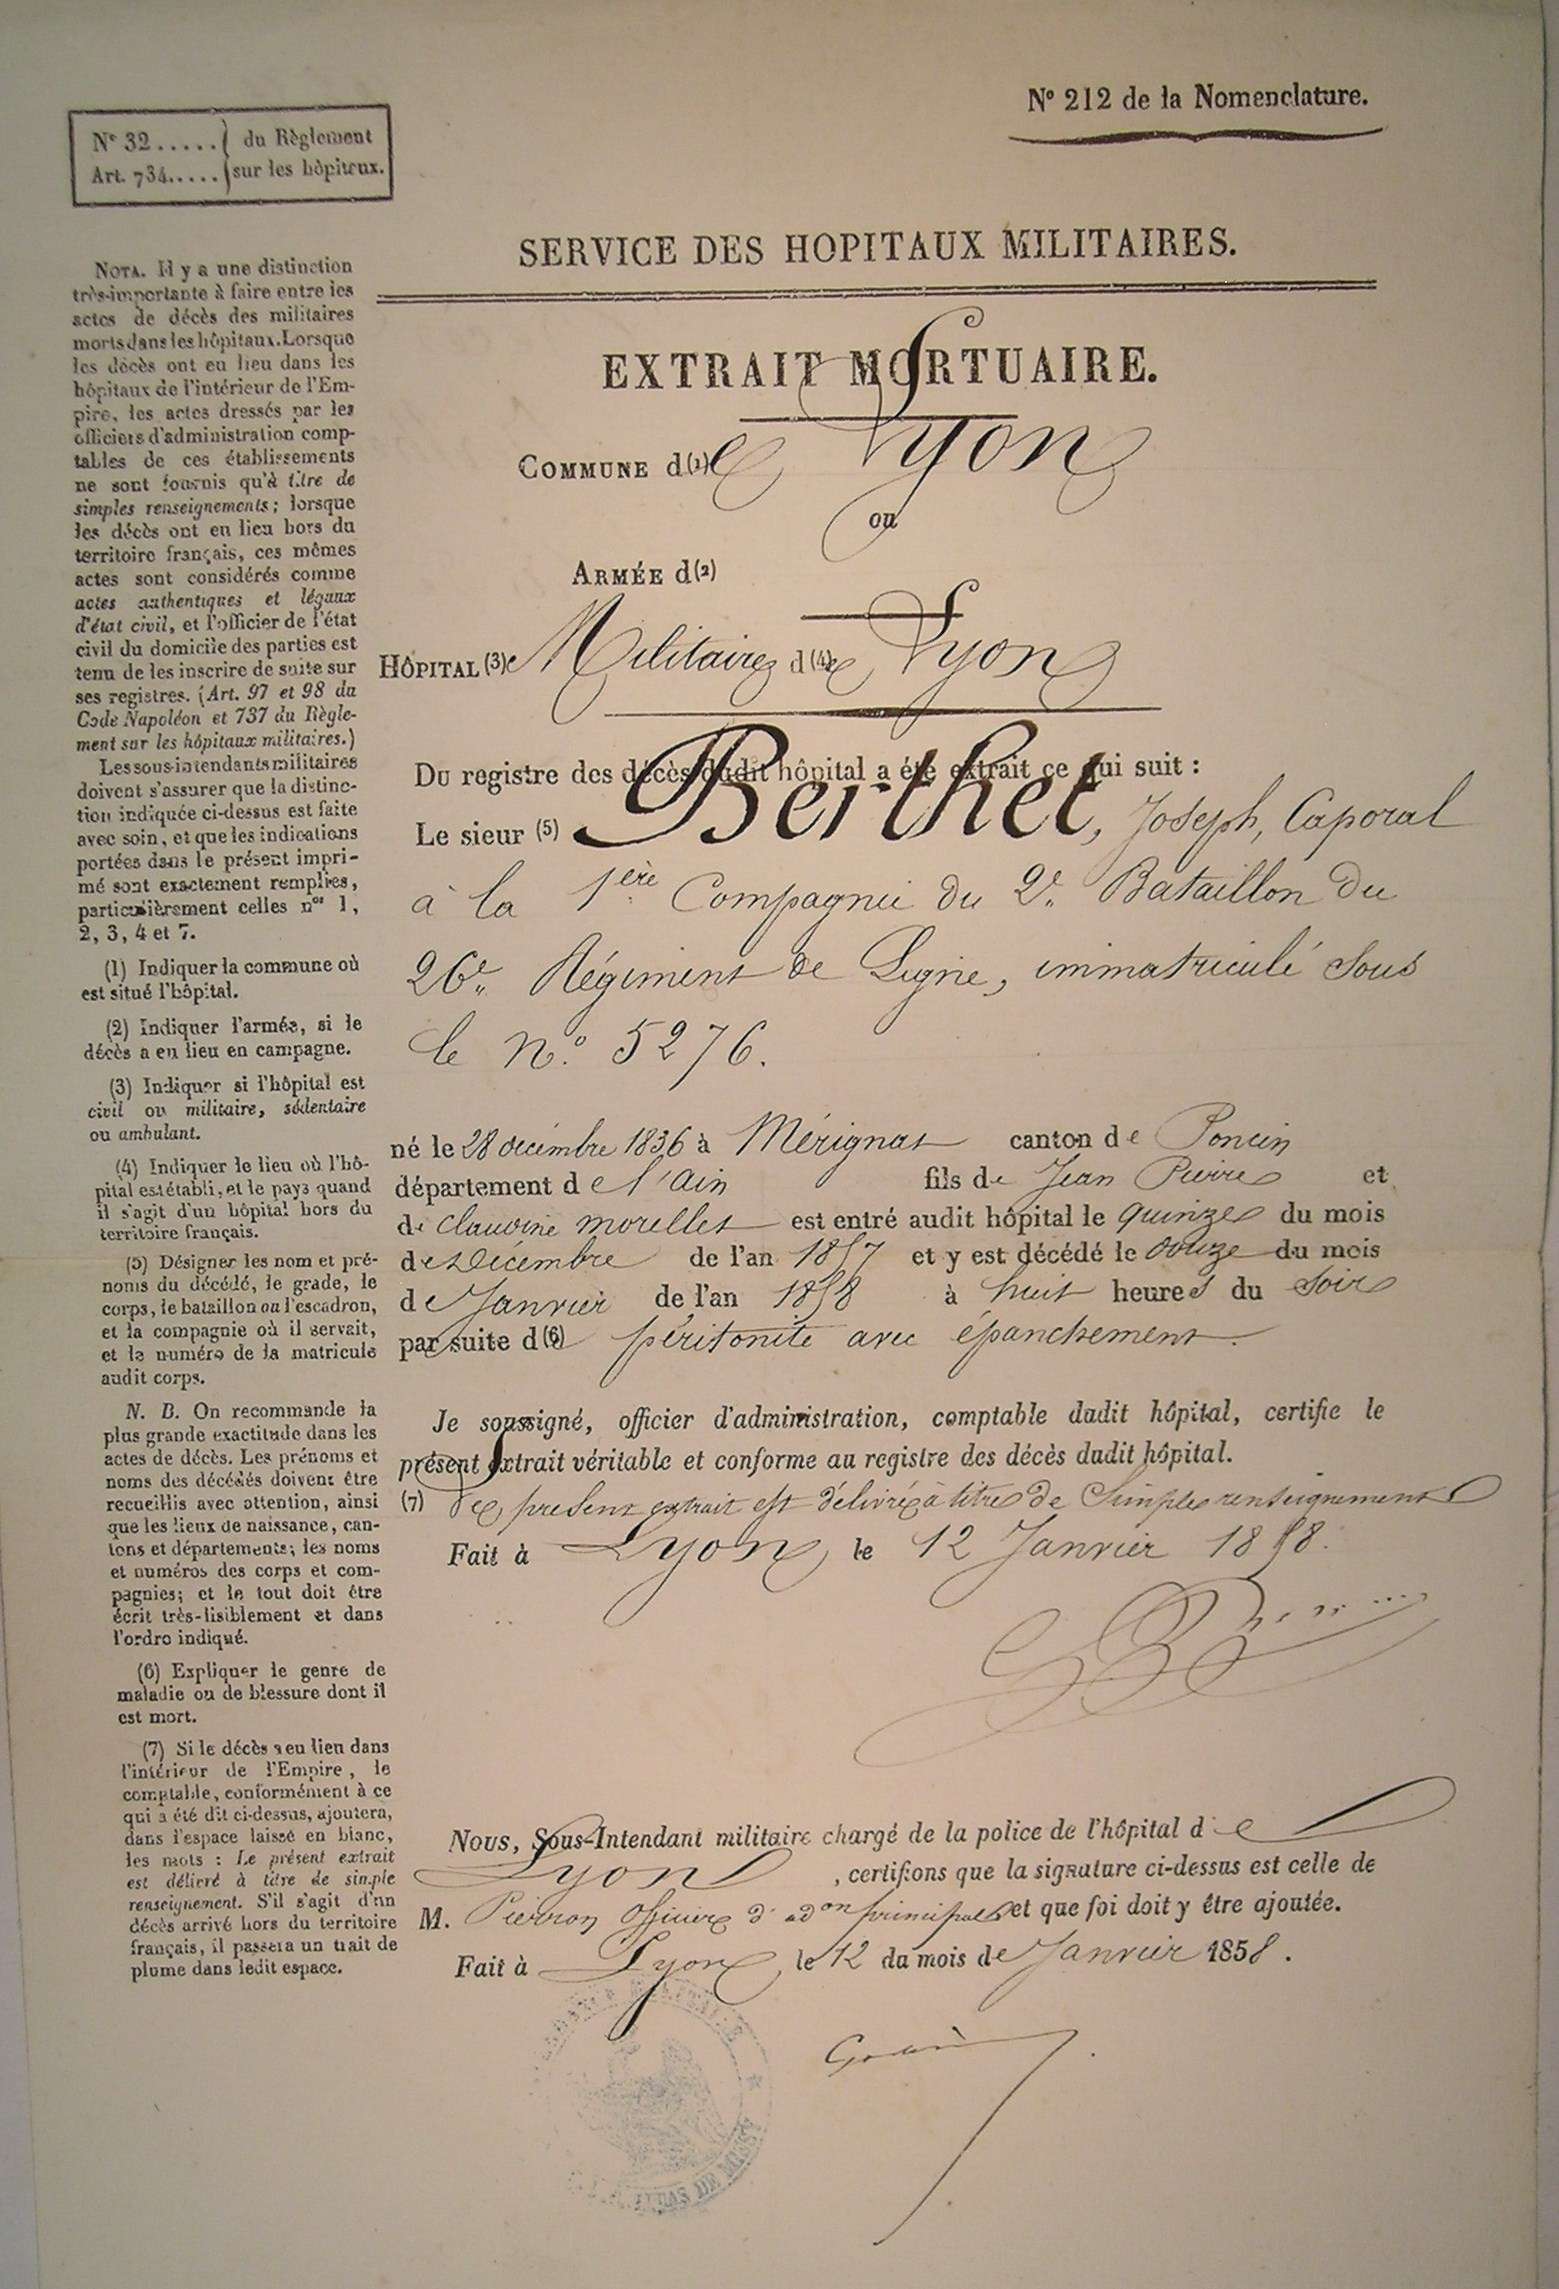 N° 212 de la Nomenclature.
N° 32 ..... du Règlement
Art. 734 ..... sur les hôpitaux.
SERVICE DES HOPITAUX MILITAIRES.
EXTRAIT MORTUAIRE.
COMMUNE d(1)e Lyon
ou
ARMÉE d(2)
HÔPITAL (3) Militaire d(4)e Lyon
Du registre des décès dudit hôpital a été extrait ce qui suit :
Le sieur (5) Berthet, Joseph, Caporal
à la 1ère Compagnie du 2e Bataillon du
26e Régiment de Ligne, immatriculé sous
le n° 5276.
né le 28 décembre 1836 à Mérignat canton de Poncin
département de l'ain fils de Jean Pierre et
de claudine morellet est entré audit hôpital le quinze du mois
de Décembre de l'an 1857 et y est décédé le douze du mois
de Janvier de l'an 1858 à huit heures du soir
par suite d(6)e péritonite avec épanchement.
Je soussigné, officier d'administration, comptable dudit hôpital, certifie le
présent extrait véritable et conforme au registre des décès dudit hôpital.
(7) Le présent extrait est délivré à titre de simple renseignement
Fait à Lyon, le 12 Janvier 1858.
Nous, Sous-Intendant militaire chargé de la police de l'hôpital de
Lyon, certifions que la signature ci-dessus est celle de
M. Pierron officier d'adon principal et que foi doit y être ajoutée.
Fait à Lyon, le 12 du mois de Janvier 1858.
NOTA. Il y a une distinction
très-importante à faire entre les
actes de décès des militaires
morts dans les hôpitaux. Lorsque
les décès ont eu lieu dans les
hôpitaux de l'intérieur de l'Em-
pire, les actes dressés par les
officiers d'administration comp-
tables de ces établissements
ne sont fournis qu'à titre de
simples renseignements; lorsque
les décès ont eu lieu hors du
territoire français, ces mêmes
actes sont considérés comme
actes authentiques et légaux
d'état civil, et l'officier de l'état
civil du domicile des parties est
tenu de les inscrire de suite sur
ses registres. (Art. 97 et 98 du
Code Napoléon et 737 du Règle-
ment sur les hôpitaux militaires.)
Les sous-intendants militaires
doivent s'assurer que la distinc-
tion indiquée ci-dessus est faite
avec soin, et que les indications
portées dans le présent impri-
mé sont exactement remplies,
particulièrement celles nos 1,
2, 3, 4 et 7.
(1) Indiquer la commune où
est situé l'hôpital.
(2) Indiquer l'armée, si le
décès a eu lieu en campagne.
(3) Indiquer si l'hôpital est
civil ou militaire, sédentaire
ou ambulant.
(4) Indiquer le lieu où l'hô-
pital est établi, et le pays quand
il s'agit d'un hôpital hors du
territoire français.
(5) Désigner les nom et pré-
noms du décédé, le grade, le
corps, le bataillon ou l'escadron,
et la compagnie où il servait,
et le numéro de la matricule
audit corps.
N. B. On recommande la
plus grande exactitude dans les
actes de décès. Les prénoms et
noms des décédés doivent être
recueillis avec attention, ainsi
que les lieux de naissance, can-
tons et départements; les noms
et numéros des corps et com-
pagnies; et le tout doit être
écrit très-lisiblement et dans
l'ordre indiqué.
(6) Expliquer le genre de
maladie ou de blessure dont il
est mort.
(7) Si le décès a eu lieu dans
l'intérieur de l'Empire, le
comptable, conformément à ce
qui a été dit ci-dessus, ajoutera,
dans l'espace laissé en blanc,
les mots : Le présent extrait
est délivré à titre de simple
renseignement. S'il s'agit d'un
décès arrivé hors du territoire
français, il passera un trait de
plume dans ledit espace.